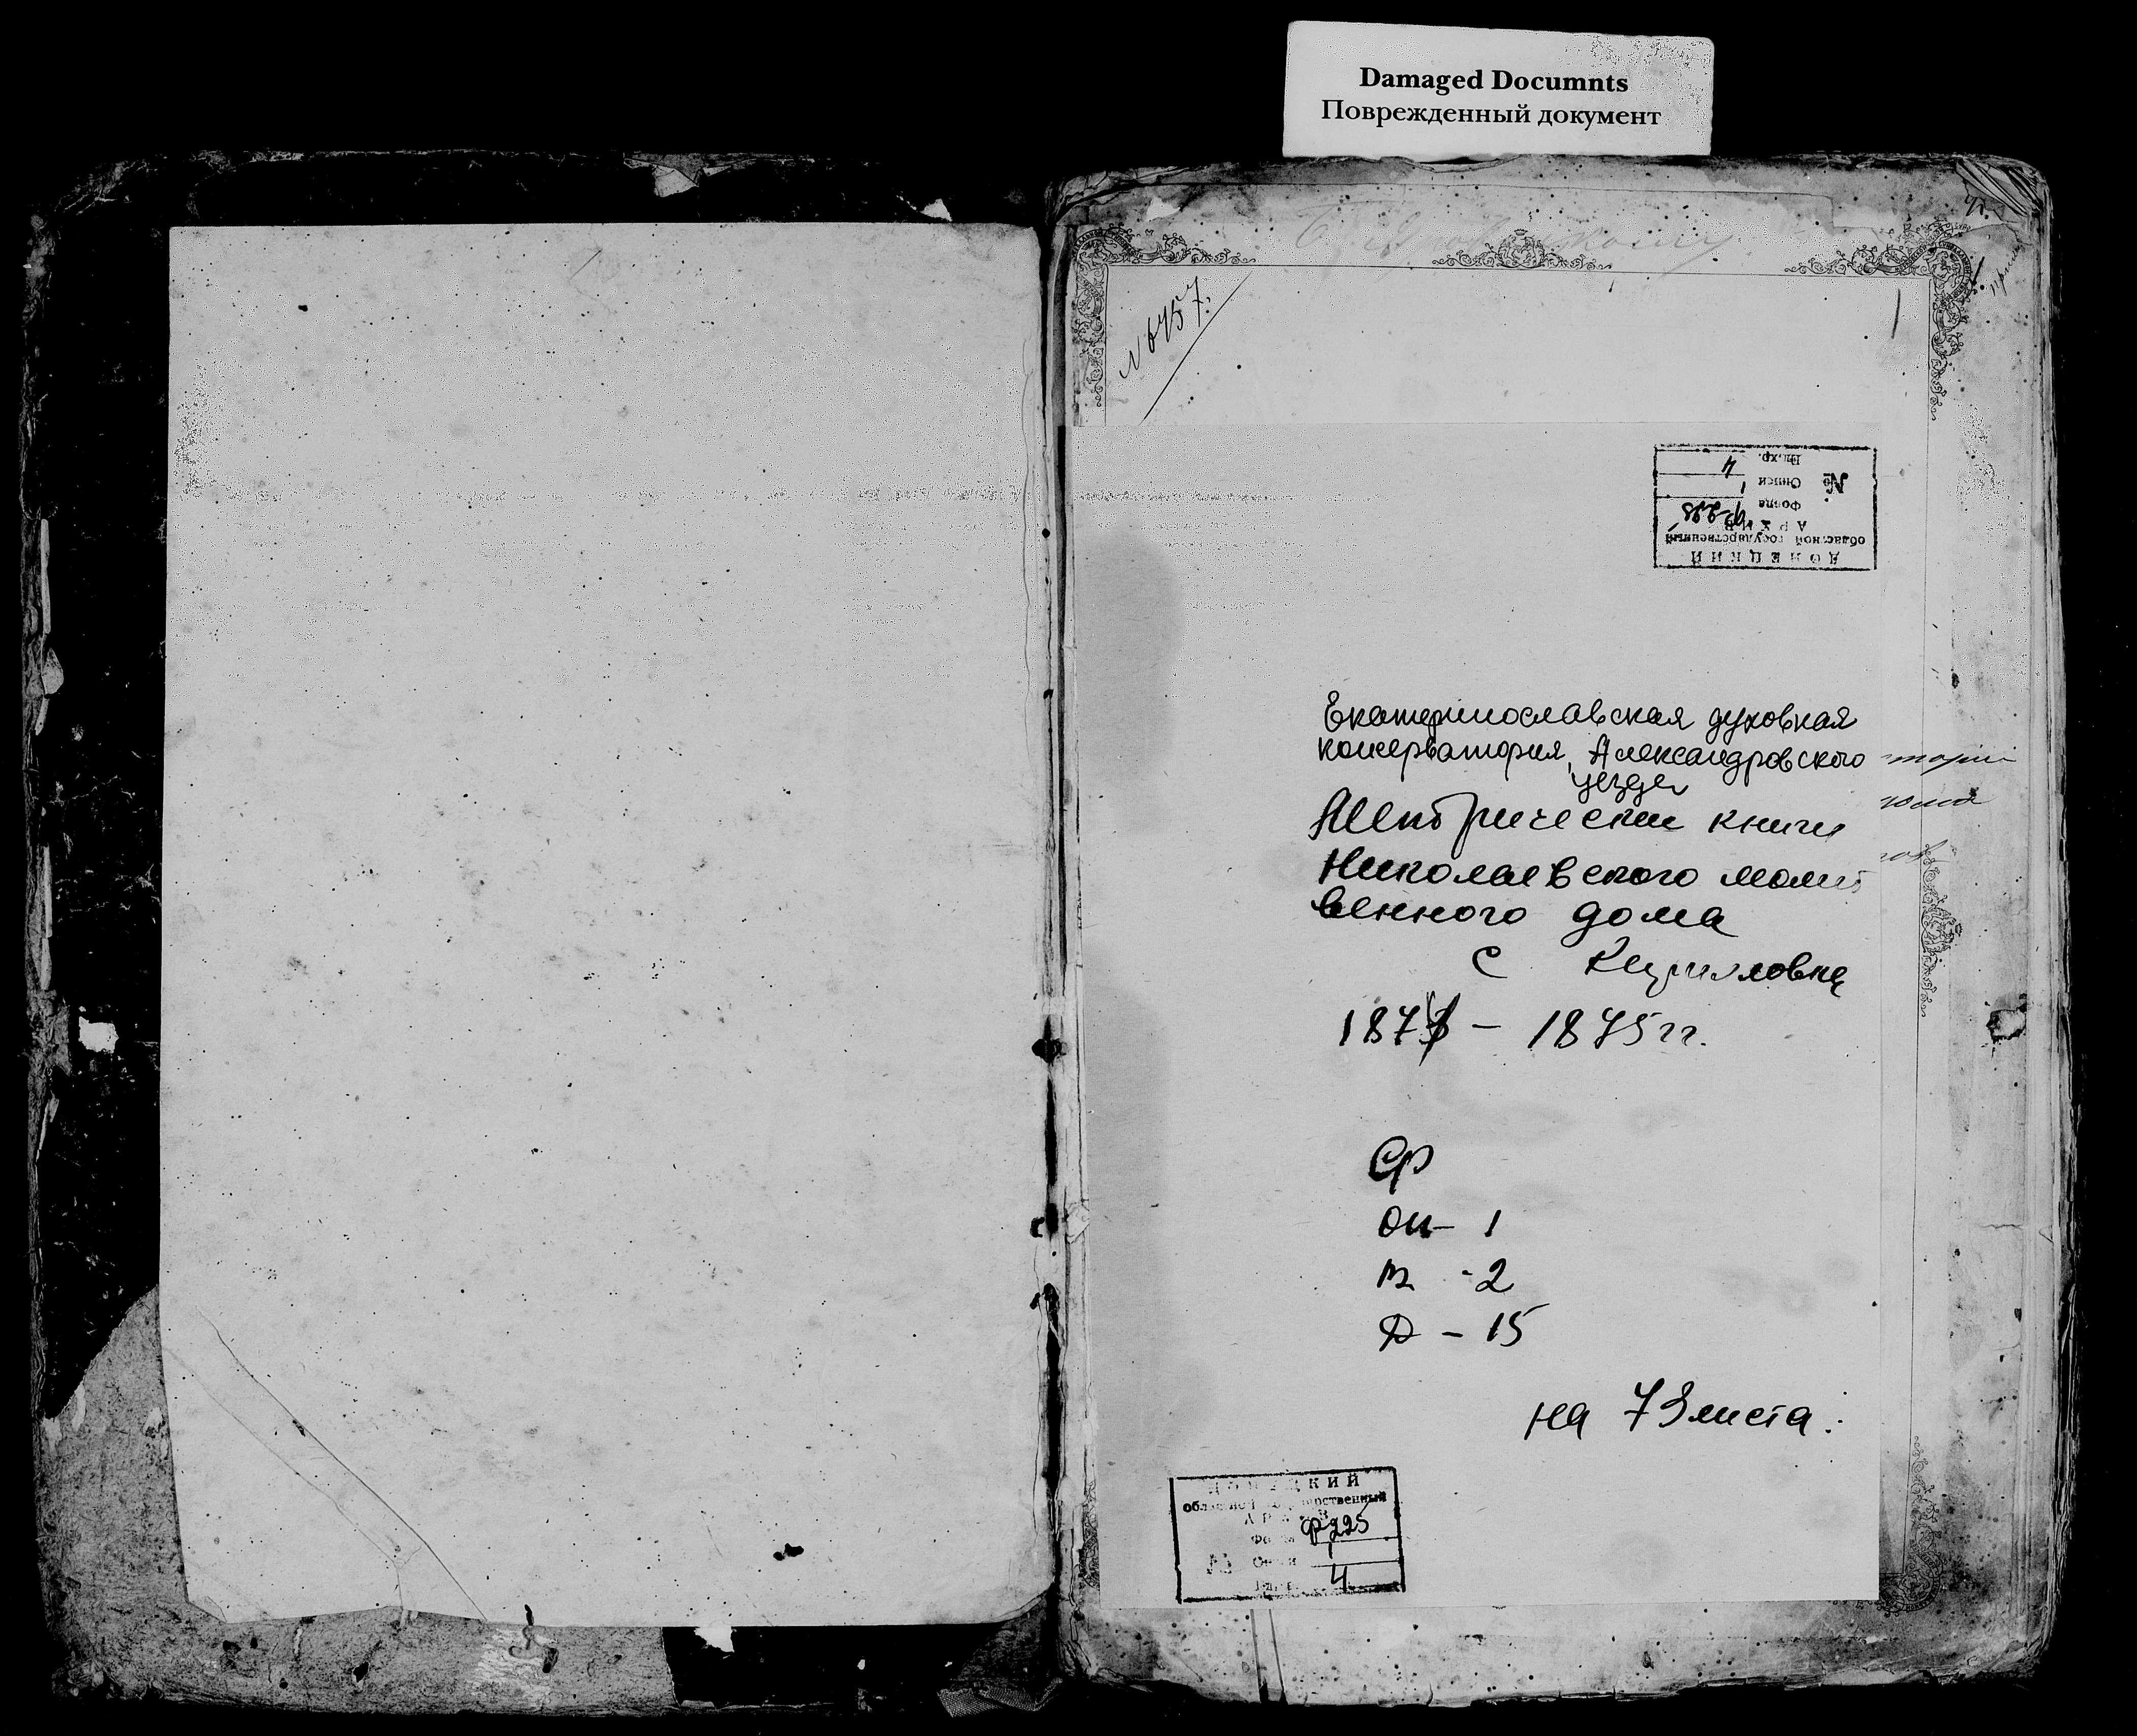 Damaged Documnts
Поврежденный документ
N 6457.
1
ДОНЕЦКИЙ
областной государственный
АРХИВ
Фонда
№ Описи 1
Ед.хр. 4
Екатеринославская духовная
консерватория, Александровского
уезда
Метрические книги
Николаевского молит
венного дома
с
187 – 1875 гг.
Ф
Оп – 1
т - 2
Д – 15
на 73 листа.
ДОНЕЦКИЙ
областной государственный
АРХИВ
Фонда Ф225
№ Описи 1
Ед.хр. 4